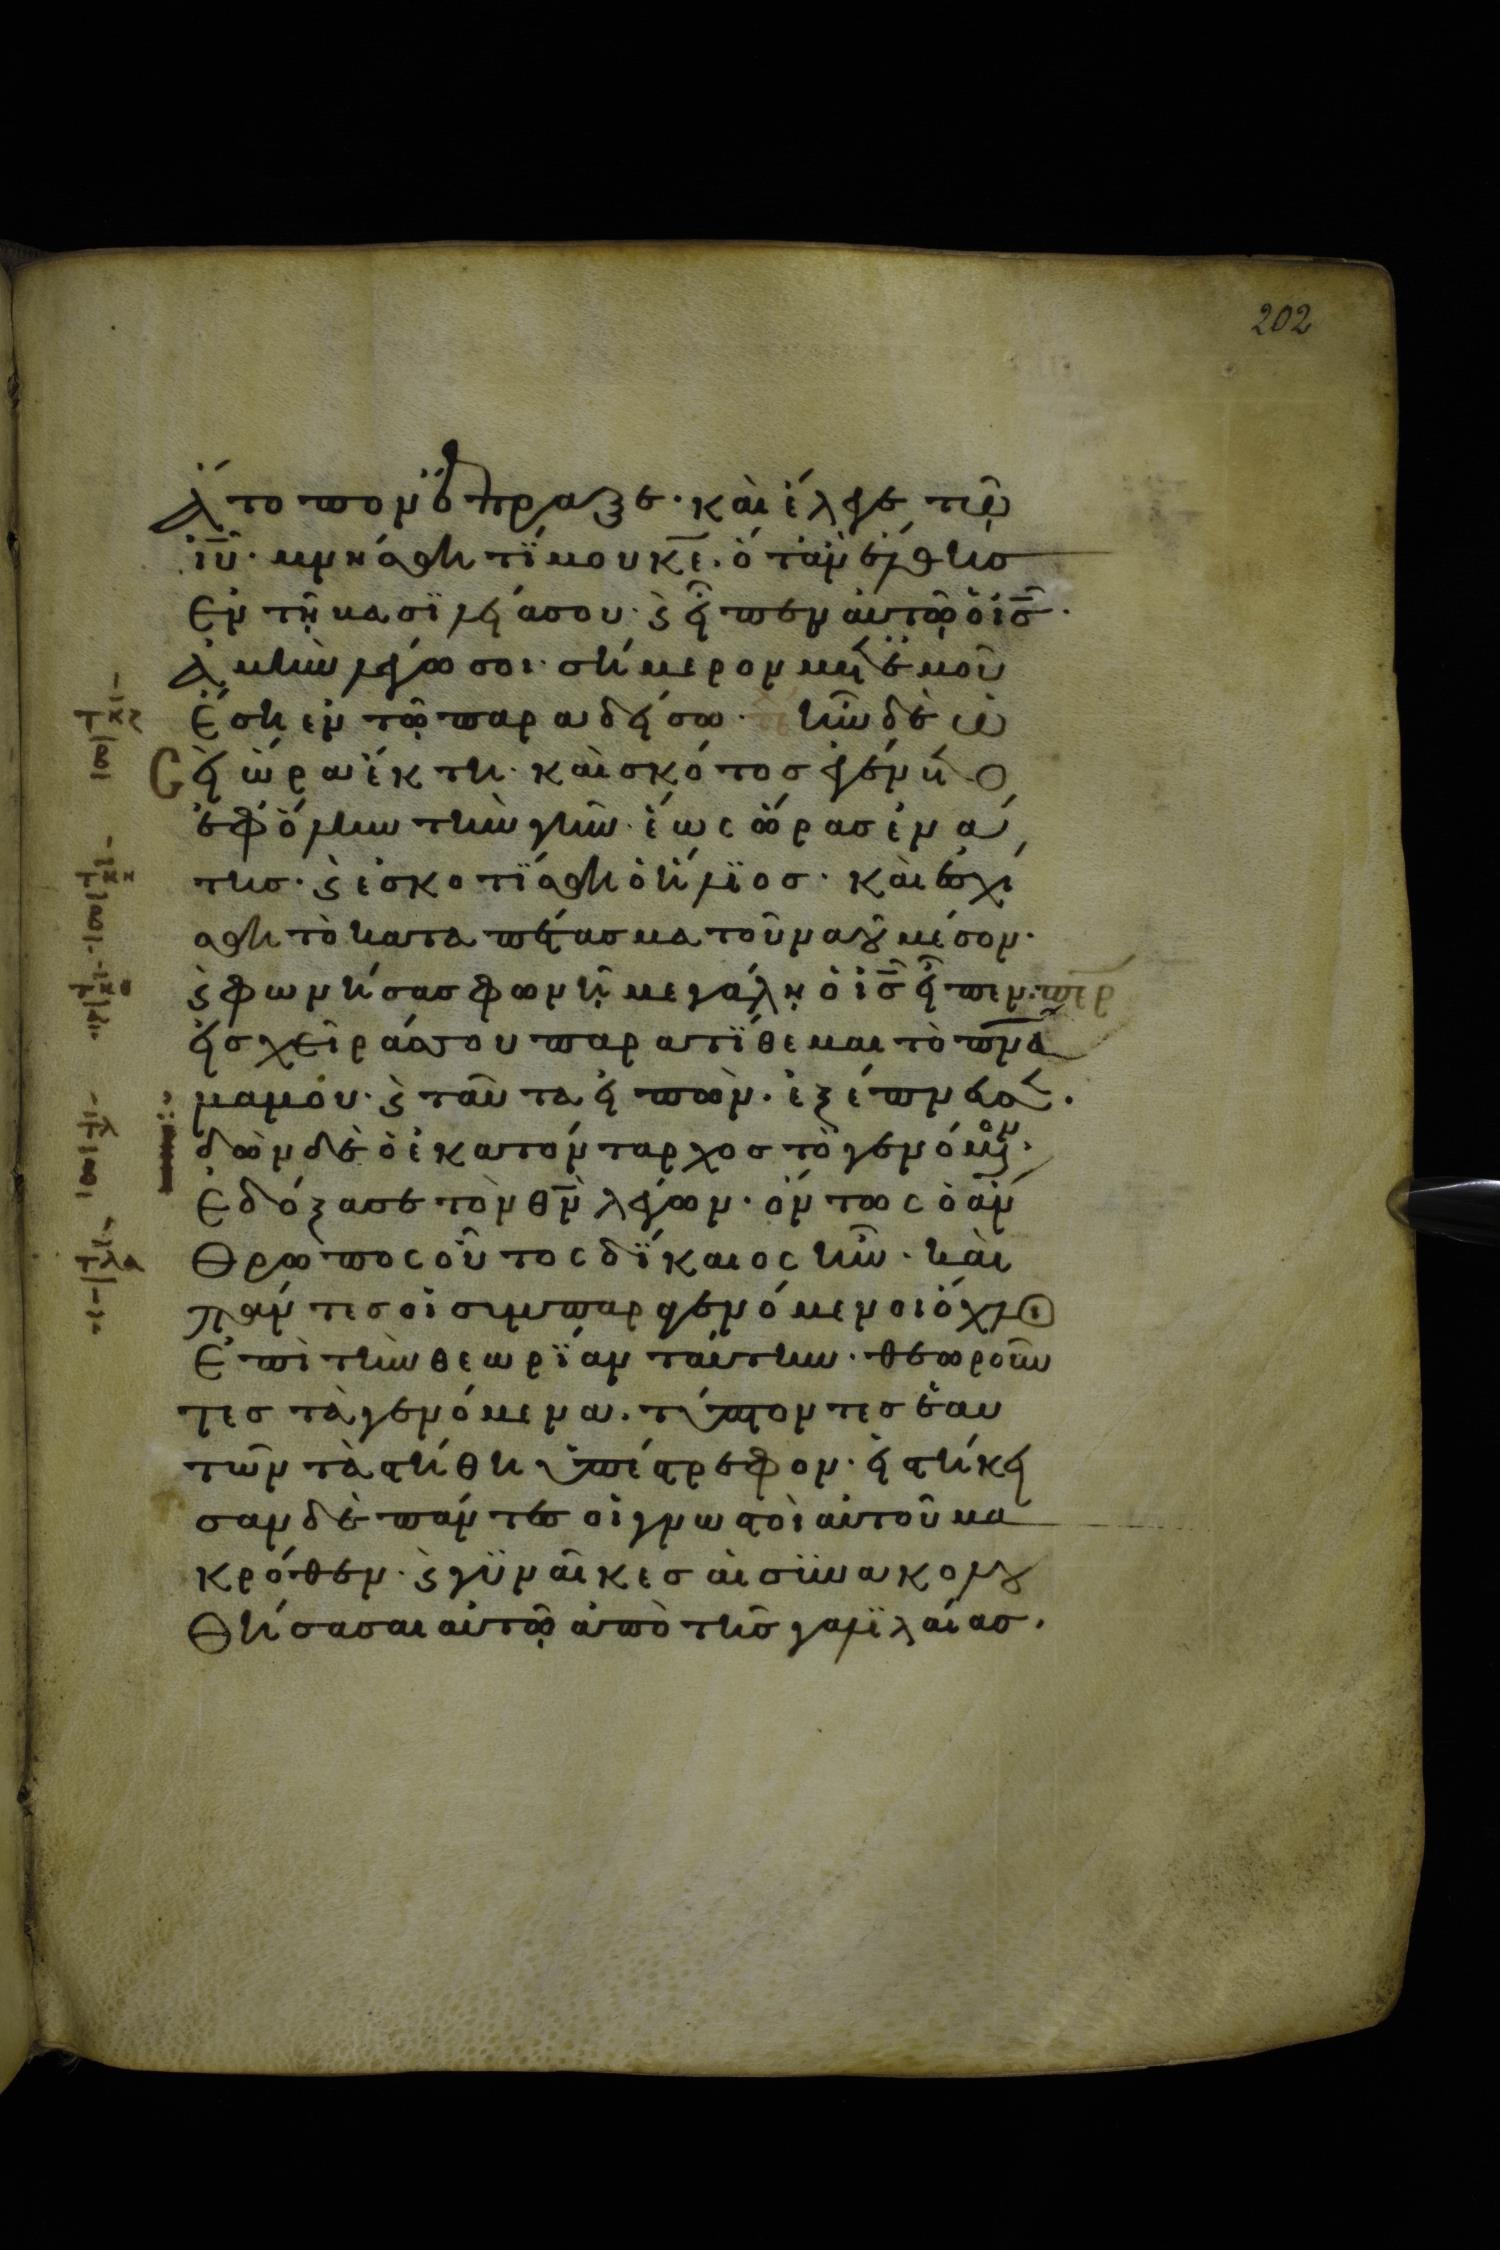 202
ἄτοπον ἔπραξε· καὶ ἔλεγε τῶ
ἰῦ· μνήσθητί μου κε· ὅταν ἔλθης
ἐν τῆ βασιλεία σου· ϛ εἶπεν αὐτῶ ὁ ις·
ἀμὴν λέγω σοι· σήμερον μετ' ἐμοῦ
ἔση ἐν τῶ παραδείσω· ἦν δὲ ὡ
σεὶ ὥρα ἕκτη· καὶ σκότος ἐγένετο
ἐφ' ὅλην τὴν γῆν· ἕως ὥρας ἐνά
της· ϛ ἐσκοτίσθη ὁ ἥλιος· καὶ ἐσχί
σθη τὸ καταπέτασμα τοῦ ναοῦ μέσον·
ϛ φωνήσας φωνῆ μεγάλη ὁ ις εἶπεν· περ
εἰς χεῖράς σου παρατίθεμαι τὸ πνα
μα μου· ϛ ταῦτα εἰπὼν· ἐξέπνευσεν·
ἰδὼν δὲ ὁ ἑκατόνταρχος τὸ γενόμενον·
ἐδόξασε τὸν θν λέγων· ὄντως ὁ ἄν
θρωπος οὗτος δίκαιος ἦν· καὶ
πάντες οἱ συμπαραγενόμενοι ὄχλοι
ἐπὶ τὴν θεωρίαν ταύτην· θεωροῦν
τες τὰ γενόμενα· τύπτοντες ἑαυ
τῶν τὰ στήθη ὑπέστρεφον· εἱστήκει
σαν δὲ πάντες οἱ γνωστοὶ αὐτοῦ μα
κρόθεν· ϛ γυναῖκες αἱ συνακολου
θήσασαι αὐτῶ ἀπὸ τῆς γαλιλαίας·